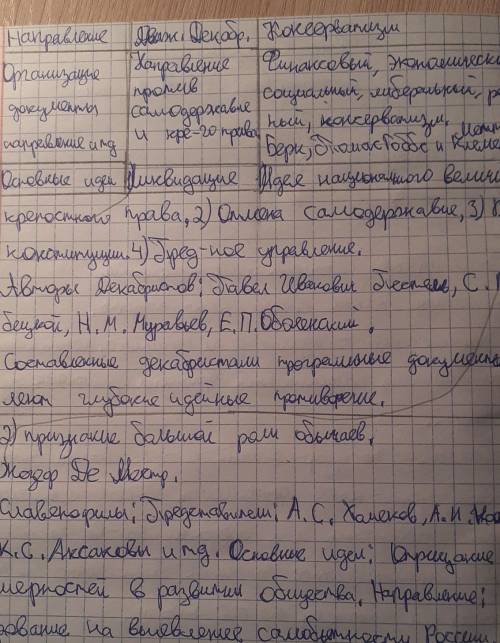 Направление Движ. Декабр. Консерватизм
Организации Направление Финансовый, экономически
документы против социальный, либеральный, р
направление и тд самодержавие ный, консерватизм.
и кре-го права Берк, Томас Гоббс и Клеме
Основные идеи Ликвидация Идея национального велич
крепостного права, 2) Отмена самодержавие, 3)
конституции. 4) Пред-ное управление.
Авторы Декабристов: Павел Иванович Пестель, С.
бецкой, Н.М. Муравьев, Е.П. Оболенский.
Составленные декабристами програмные документ
ляют глубокие идейные противоречие.
2) признание большой роли обычаев.
Жозеф Де Местр.
Славянофилы: Представители: А.С. Хомяков, А.И. Ко
К.С. Аксаковы и тд. Основные идеи:
мерностей в развитии общества. Направление:
зование на выявление самобытности России